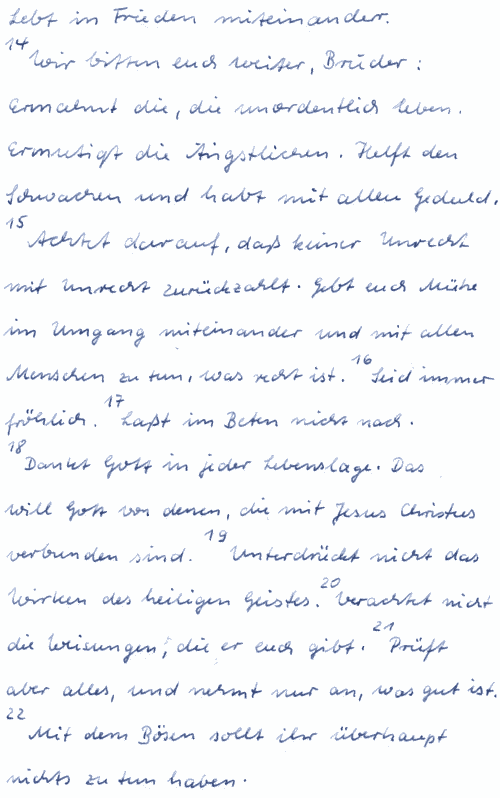 Lebt in Frieden miteinander.
14 Wir bitten euch weiter, Brüder:
Ermahnt die, die unordentlich leben.
Ermutigt die Ängstlichen. Helft den
Schwachen und habt mit allen Geduld.
15 Achtet darauf, daß keiner Unrecht
mit Unrecht zurückzahlt. Gebt euch Mühe
im Umgang miteinander und mit allen
Menschen zu tun, was recht ist. 16 Seid immer
fröhlich. 17 Laßt im Beten nicht nach.
18 Dankt Gott in jeder Lebenslage. Das
will Gott von denen, die mit Jesus Christus
verbunden sind. 19 Unterdrückt nicht das
Wirken des heiligen Geistes. 20 Verachtet nicht
die Weisungen, die er euch gibt. 21 Prüft
aber alles, und nehmt nur an, was gut ist.
22 Mit dem Bösen sollt ihr überhaupt
nichts zu tun haben.